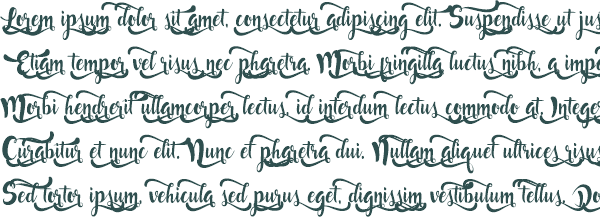 Lorem ipsum dolor sit amet, consectetur adipiscing elit. Suspendisse ut jus
Etiam tempor vel risus nec pharetra. Morbi fringilla luctus nibh, a impe
Morbi hendrerit ullamcorper lectus, id interdum lectus commodo at. Integer
Curabitur et nunc elit. Nunc et pharetra dui. Nullam aliquet ultrices risus
Sed tortor ipsum, vehicula sed purus eget, dignissim vestibulum tellus. Do